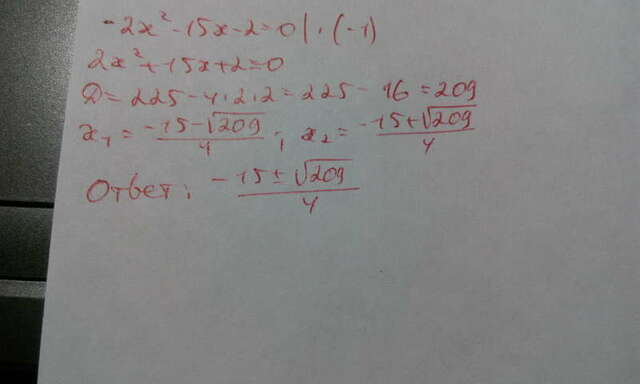 -2x² - 15x - 2 = 0 | · (-1)
2x² + 15x + 2 = 0
D = 225 - 4 · 2 · 2 = 225 - 16 = 209
x₁ = (-15 - √209)/4 ; x₂ = (-15 + √209)/4
Ответ: (-15 ± √209)/4